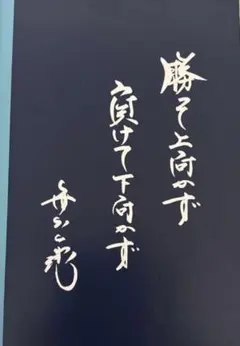 勝って上向かず
負けて下向かず